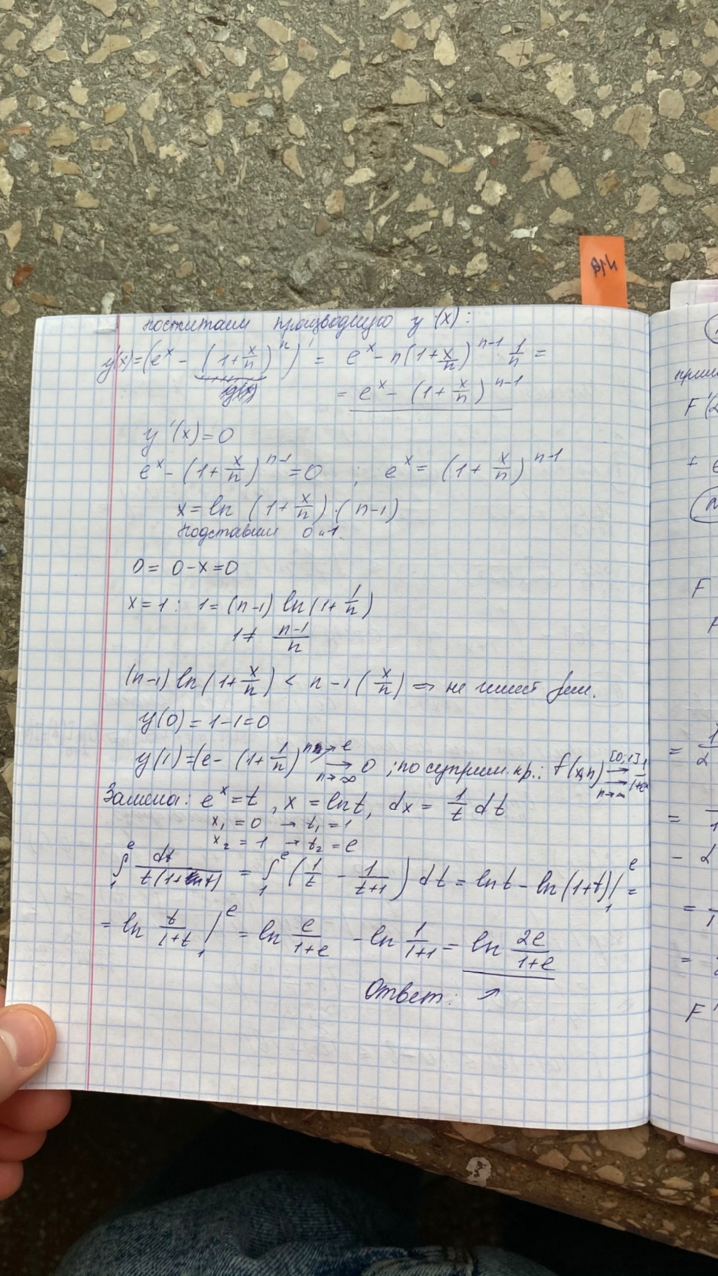 посчитаем производную y'(x):
y'(x) = (e^x - (1 + x/n)^n)' = e^x - n(1 + x/n)^{n-1} · 1/n =
= e^x - (1 + x/n)^{n-1}
y'(x) = 0
e^x - (1 + x/n)^{n-1} = 0 ; e^x = (1 + x/n)^{n-1}
x = ln (1 + x/n) · (n-1)
подставим 0 и 1.
0 = 0 - x = 0
x = 1 : 1 = (n-1) ln(1 + 1/n)
1 ≠ (n-1)/n
(n-1) ln(1 + x/n) < n-1 (x/n) ⇒ не имеет реш.
y(0) = 1 - 1 = 0
y(1) = (e - (1 + 1/n)^n → e → 0 n→∞ ; по супрем. кр.: f(x,n) [0;1] n→∞
Замена: e^x = t, x = ln t, dx = 1/t dt
x₁ = 0 → t₁ = 1
x₂ = 1 → t₂ = e
∫₁^e dt / t(1+t) = ∫₁^e (1/t - 1/(t+1)) dt = ln t - ln(1+t) |₁^e =
= ln t/(1+t) |₁^e = ln e/(1+e) - ln 1/(1+1) = ln 2e/(1+e)
Ответ: ↗
F'(
F
F'